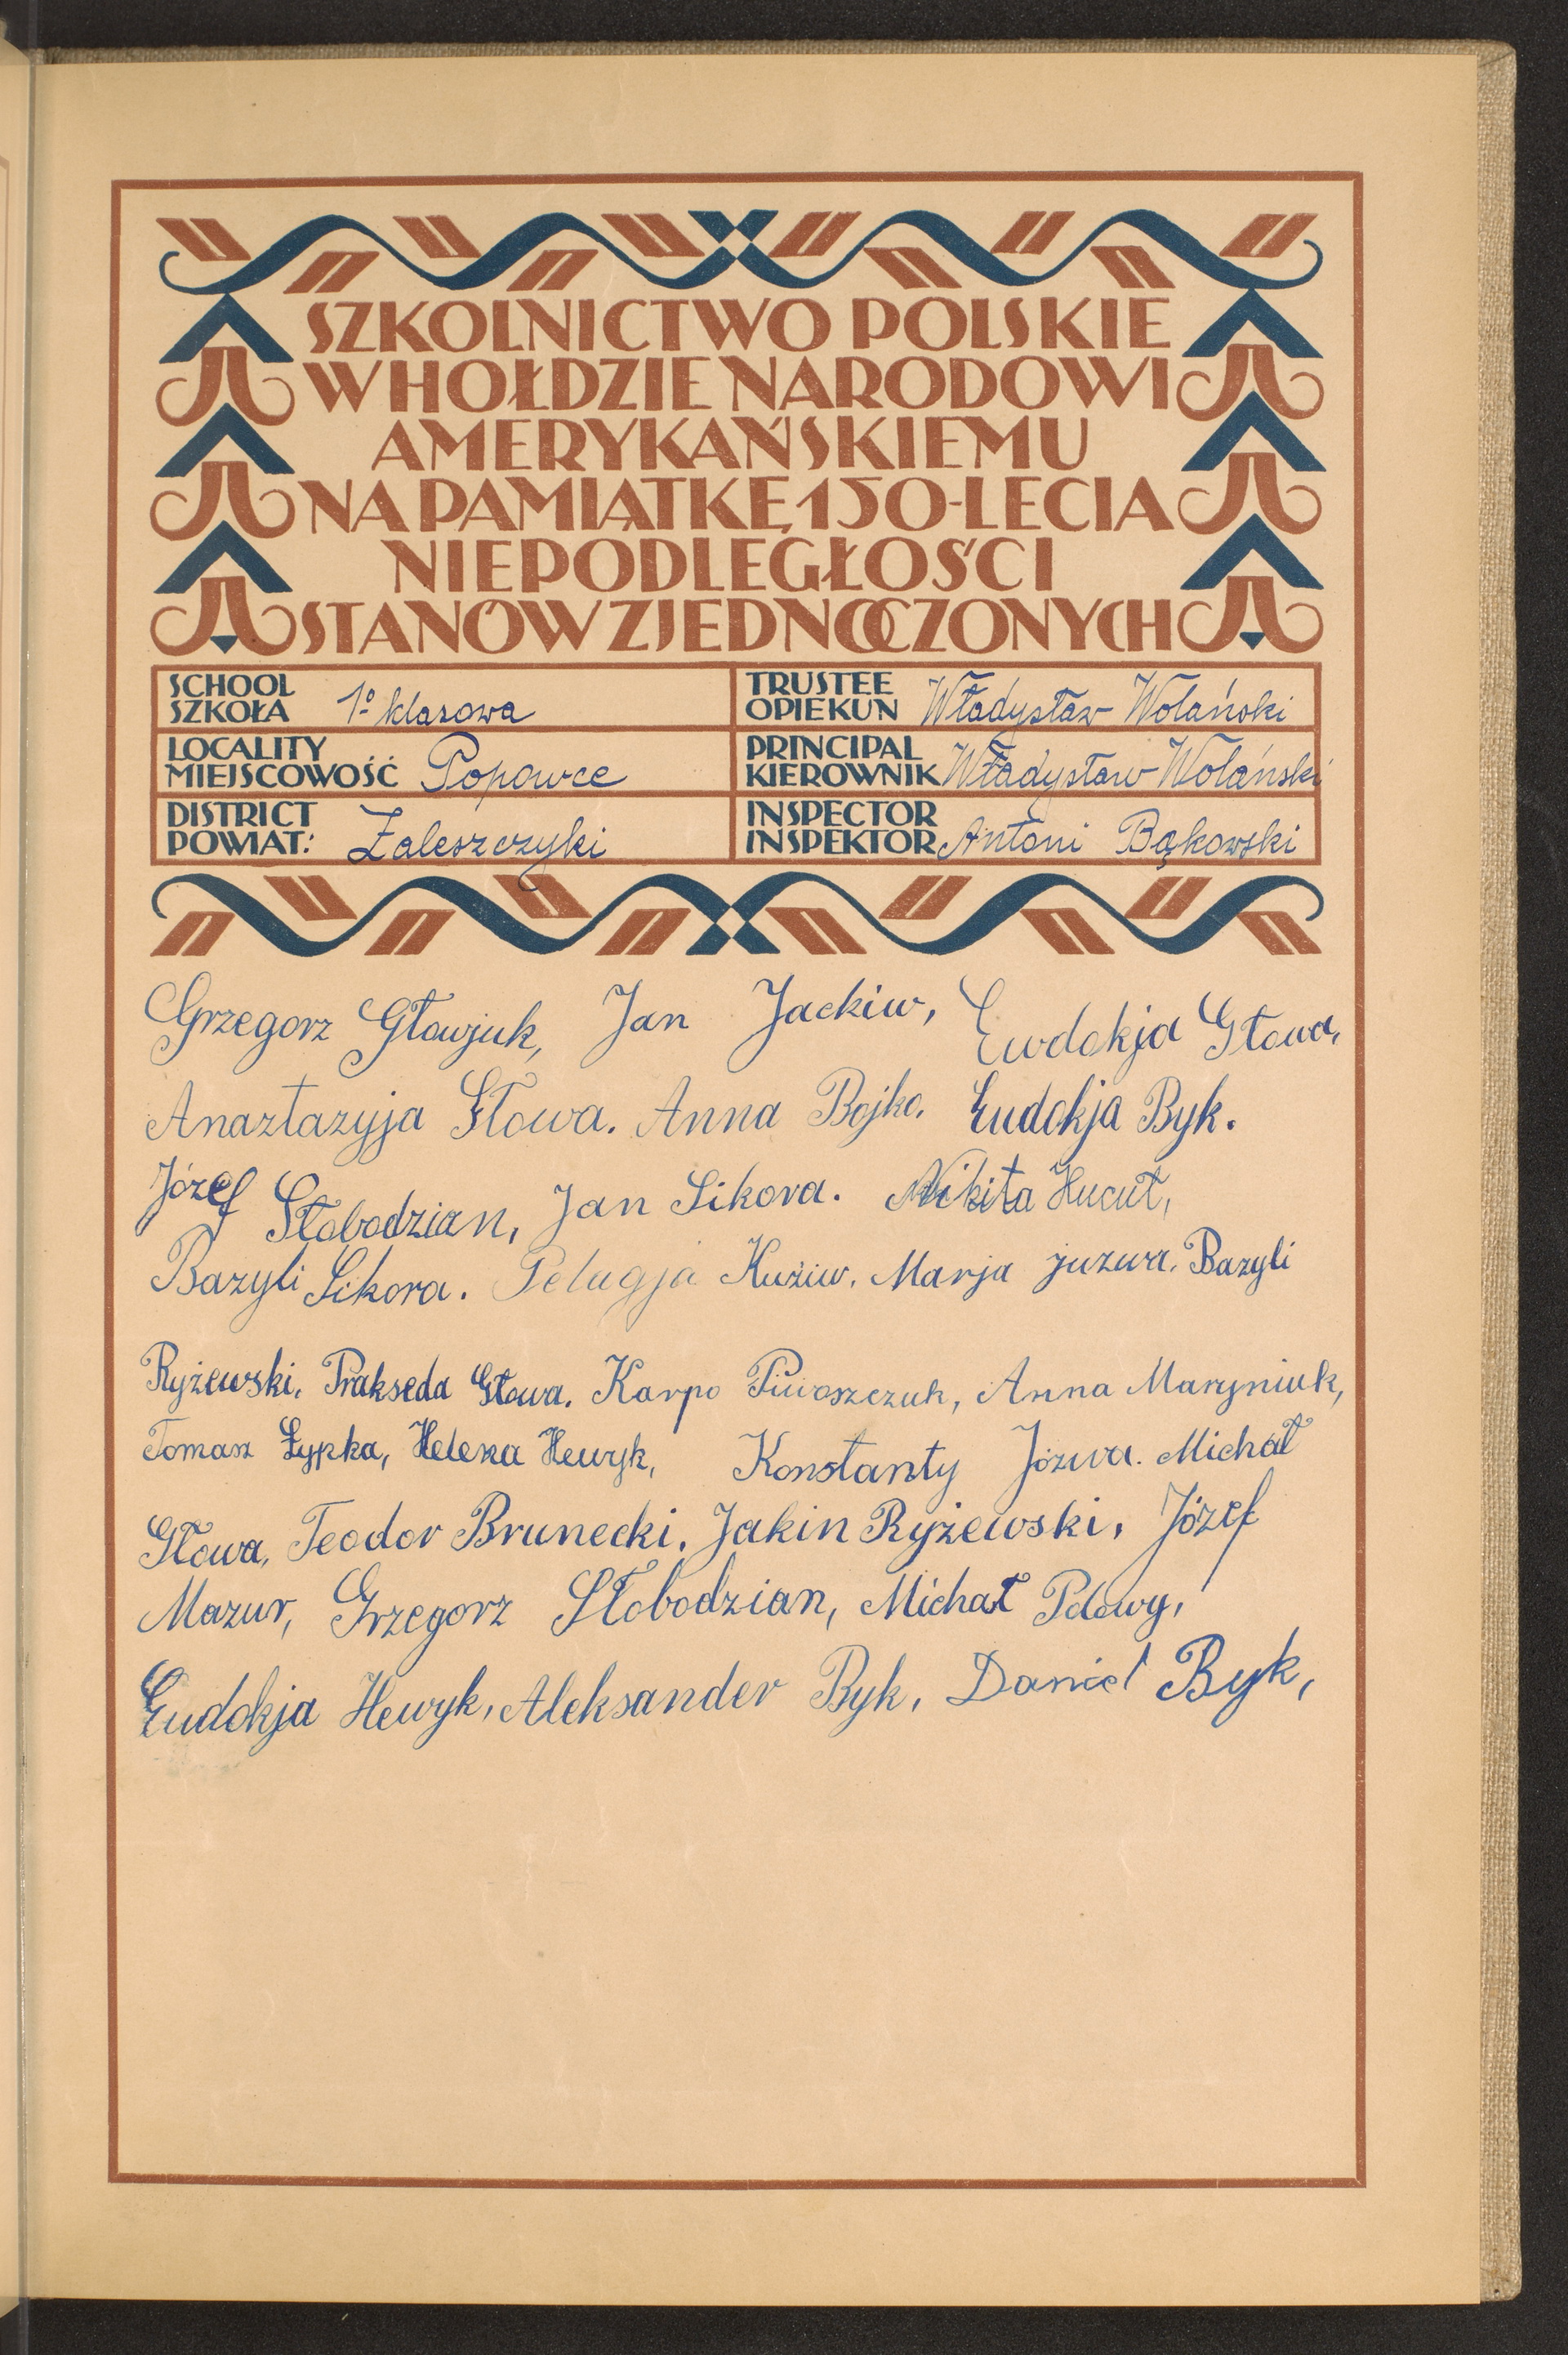 SZKOLNICTWO POLSKIE
W HOŁDZIE NARODOWI
AMERYKAŃSKIEMU
NA PAMIĄTKĘ 150-LECIA
NIEPODLEGŁOŚCI
STANÓW ZJEDNOCZONYCH
SCHOOL
SZKOŁA 1º klasowa
TRUSTEE
OPIEKUN Władysław Wolański
LOCALITY
MIEJSCOWOŚĆ Popowce
PRINCIPAL
KIEROWNIK Władysław Wolański
DISTRICT
POWIAT: Zaleszczyki
INSPECTOR
INSPEKTOR Antoni Bąkowski
Grzegorz Głowjuk, Jan Jackiw, Ewdokja Głowa,
Anaztazyja Głowa. Anna Bojko. Eudokja Byk.
Józef Słobodzian, Jan Sikora. Nikita Hucuł,
Bazyli Sikora. Pelagja Kuziw. Marja juzwa. Bazyli
Ryżewski. Prakseda Głowa. Karpo Piwoszczuk, Anna Maryniuk,
Tomasz Łypka, Helena Hewyk, Konstanty Józwa. Michał
Głowa, Teodor Brunecki. Jakin Ryżewski, Józef
Mazur, Grzegorz Słobodzian, Michał
Eudokja Hewyk, Aleksander Byk, Daniel Byk,